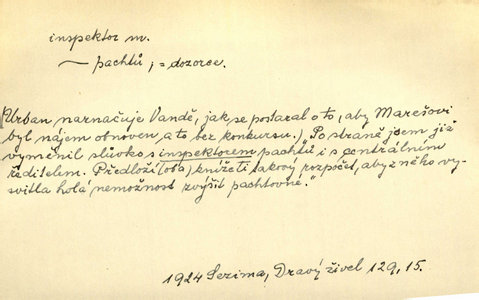 inspektor m.
— pachtů ; = dozorce.
(Urban narnačuje Vandě, jak se postaral o to, aby Marešovi
byl nájem obnoven, a to bez konkursu.) „Po straně jsem již
vyměnil slůvko s inspektorem pachtů i s centrálním
ředitelem. Předloží (oba) knížeti takový rozpočet, aby z něho vy-
svitla holá nemožnost zvýšit pachtovné.“
1924 Sezima, Dravý živel 129, 15.